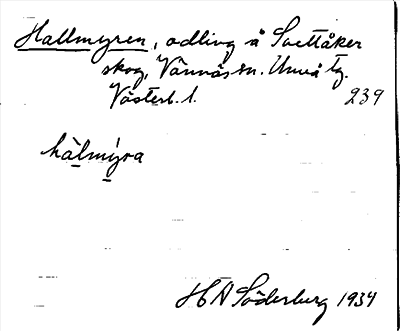 Hallmyren, odling å Svettåker
skog, Vännäs sn. Umeå tg.
Västerb. l. 239
hàlmýra
H A Söderburg 1934